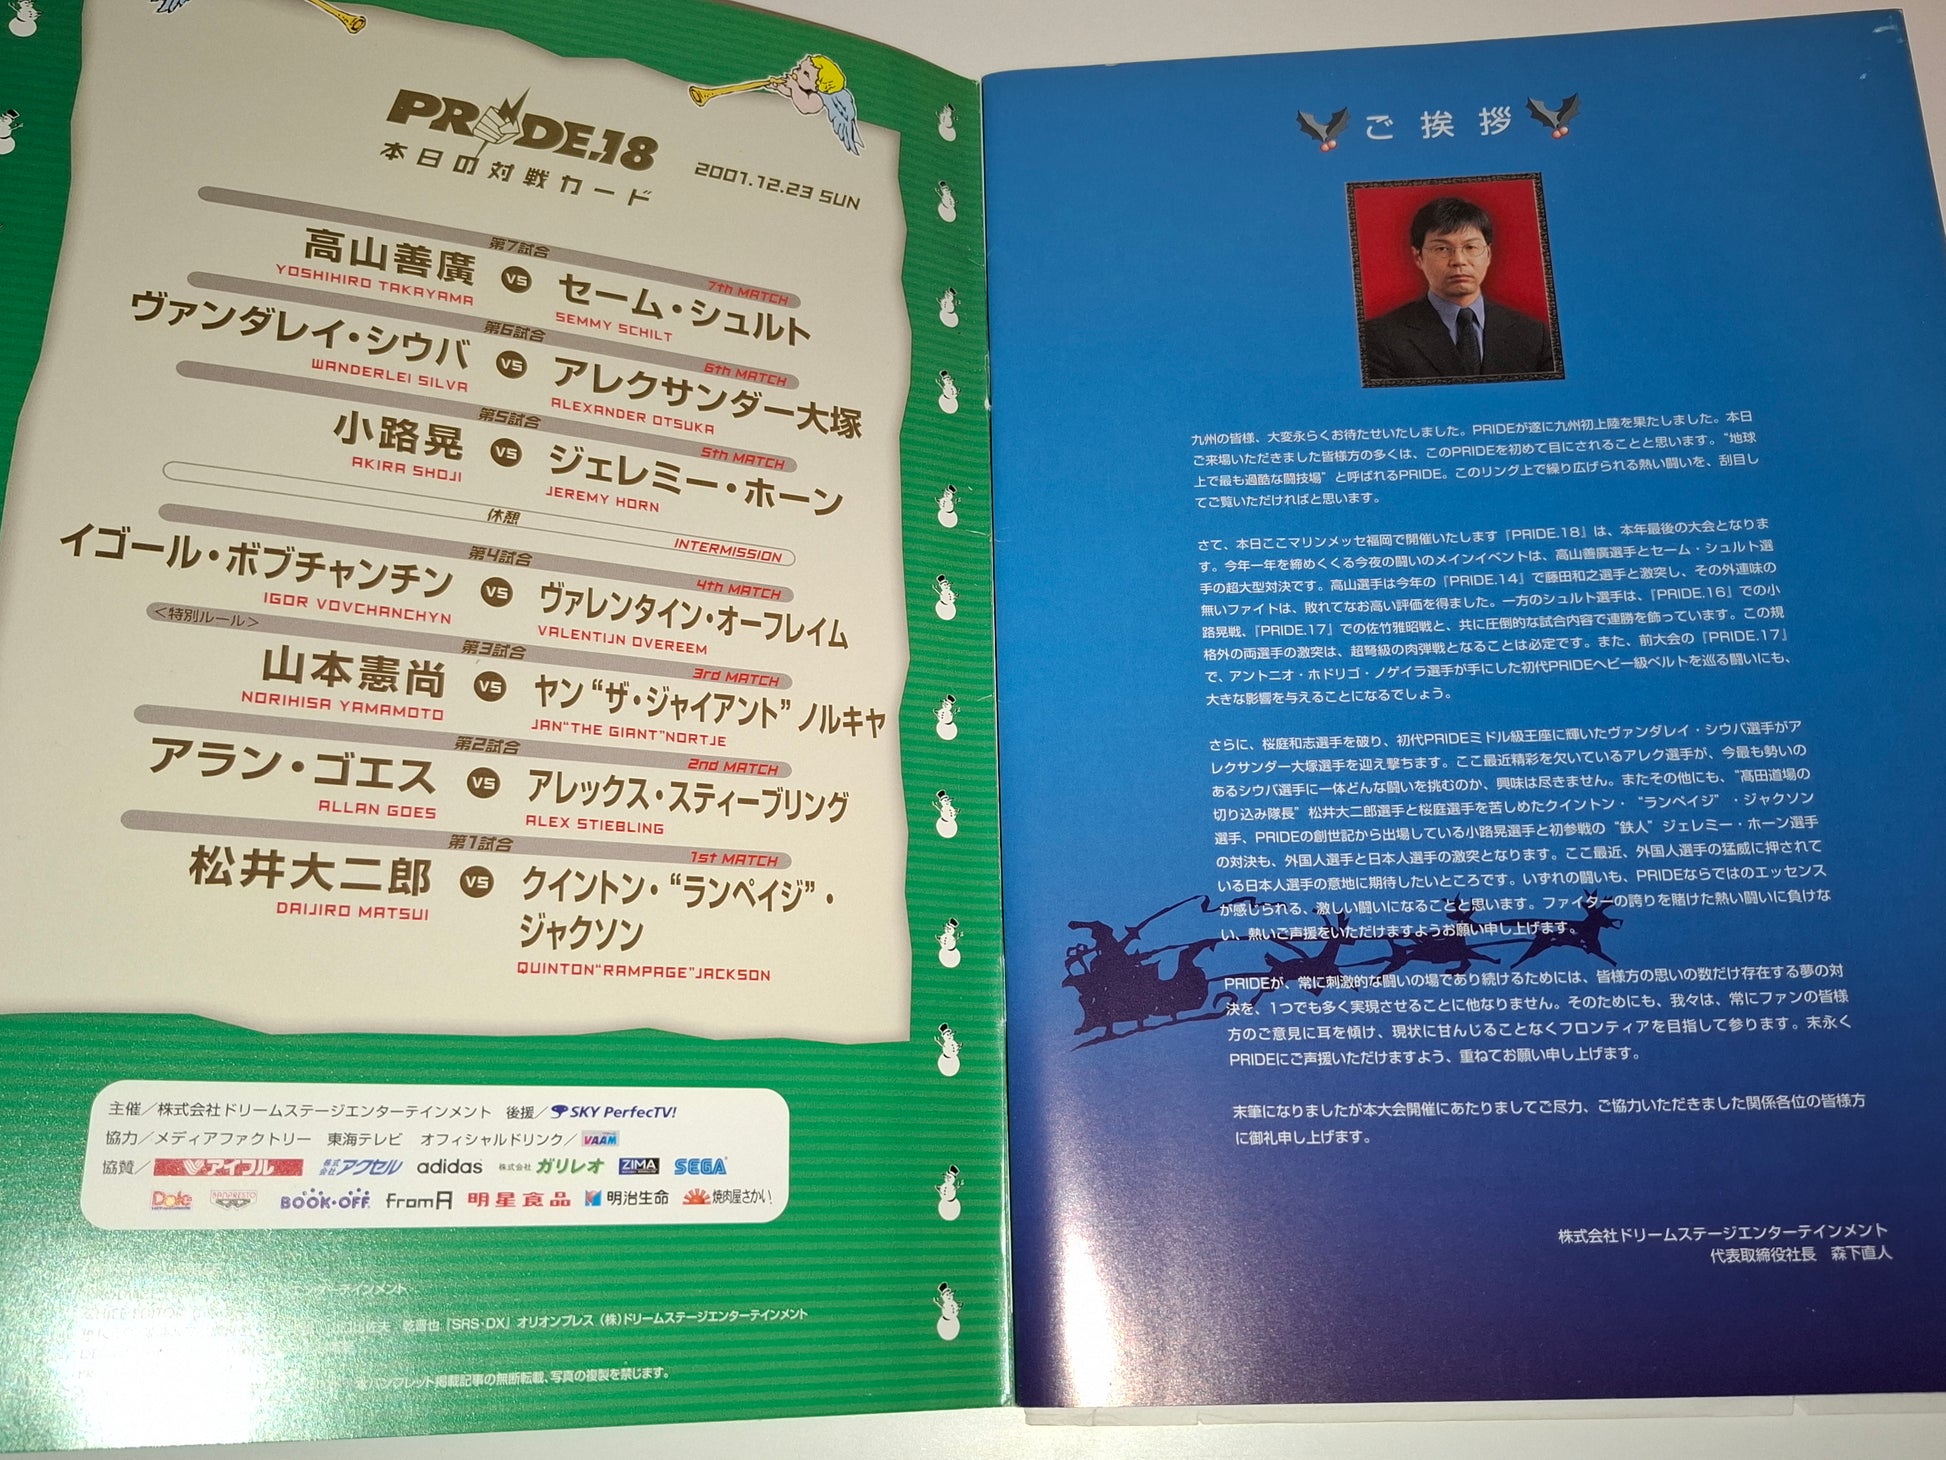 PRIDE.18
本日の対戦カード
2001.12.23 SUN
第7試合
7th MATCH
高山善廣 VS セーム・シュルト
YOSHIHIRO TAKAYAMA
SEMMY SCHILT
第6試合
6th MATCH
ヴァンダレイ・シウバ VS アレクサンダー大塚
WANDERLEI SILVA
ALEXANDER OTSUKA
第5試合
5th MATCH
小路晃 VS ジェレミー・ホーン
AKIRA SHOJI
JEREMY HORN
休憩
INTERMISSION
第4試合
4th MATCH
イゴール・ボブチャンチン VS ヴァレンタイン・オーフレイム
IGOR VOVCHANCHYN
VALENTIJN OVEREEM
<特別ルール>
第3試合
3rd MATCH
山本憲尚 VS ヤン“ザ・ジャイアント”ノルキヤ
NORIHISA YAMAMOTO
JAN"THE GIANT"NORTJE
第2試合
2nd MATCH
アラン・ゴエス VS アレックス・スティーブリング
ALLAN GOES
ALEX STIEBLING
第1試合
1st MATCH
松井大二郎 VS クイントン・“ランペイジ”・
ジャクソン
DAIJIRO MATSUI
QUINTON"RAMPAGE"JACKSON
主催／株式会社ドリームステージエンターテインメント 後援／SKY PerfecTV!
協力／メディアファクトリー 東海テレビ オフィシャルドリンク／VAAM
協賛／アイフル 株式会社アクセル adidas 株式会社ガリレオ ZIMA SEGA
Dole BANPRESTO BOOK・OFF fromA 明星食品 明治生命 焼肉屋さかい
ンターテインメント
『SRS・DX』オリオンプレス (株)ドリームステージエンターテインメント
本パンフレット掲載記事の無断転載、写真の複製を禁じます。
ご挨拶
九州の皆様、大変永らくお待たせいたしました。PRIDEが遂に九州初上陸を果たしました。本日
ご来場いただきました皆様方の多くは、このPRIDEを初めて目にされることと思います。“地球
上で最も過酷な闘技場”と呼ばれるPRIDE。このリング上で繰り広げられる熱い闘いを、刮目し
てご覧いただければと思います。
さて、本日ここマリンメッセ福岡で開催いたします『PRIDE.18』は、本年最後の大会となりま
す。今年一年を締めくくる今夜の闘いのメインイベントは、高山善廣選手とセーム・シュルト選
手の超大型対決です。高山選手は今年の『PRIDE.14』で藤田和之選手と激突し、その外連味の
無いファイトは、敗れてなお高い評価を得ました。一方のシュルト選手は、『PRIDE.16』での小
路晃戦、『PRIDE.17』での佐竹雅昭戦と、共に圧倒的な試合内容で連勝を飾っています。この規
格外の両選手の激突は、超弩級の肉弾戦となることは必定です。また、前大会の『PRIDE.17』
で、アントニオ・ホドリゴ・ノゲイラ選手が手にした初代PRIDEヘビー級ベルトを巡る闘いにも、
大きな影響を与えることになるでしょう。
さらに、桜庭和志選手を破り、初代PRIDEミドル級王座に輝いたヴァンダレイ・シウバ選手がア
レクサンダー大塚選手を迎え撃ちます。ここ最近精彩を欠いているアレク選手が、今最も勢いの
あるシウバ選手に一体どんな闘いを挑むのか、興味は尽きません。またその他にも、“高田道場の
切り込み隊長”松井大二郎選手と桜庭選手を苦しめたクイントン・“ランペイジ”・ジャクソン
選手、PRIDEの創世記から出場している小路晃選手と初参戦の“鉄人”ジェレミー・ホーン選手
の対決も、外国人選手と日本人選手の激突となります。ここ最近、外国人選手の猛威に押されて
いる日本人選手の意地に期待したいところです。いずれの闘いも、PRIDEならではのエッセンス
が感じられる、激しい闘いになることと思います。ファイターの誇りを賭けた熱い闘いに負けな
い、熱いご声援をいただけますようお願い申し上げます。
PRIDEが、常に刺激的な闘いの場であり続けるためには、皆様方の思いの数だけ存在する夢の対
決を、1つでも多く実現させることに他なりません。そのためにも、我々は、常にファンの皆様
方のご意見に耳を傾け、現状に甘んじることなくフロンティアを目指して参ります。末永く
PRIDEにご声援いただけますよう、重ねてお願い申し上げます。
末筆になりましたが本大会開催にあたりましてご尽力、ご協力いただきました関係各位の皆様方
に御礼申し上げます。
株式会社ドリームステージエンターテインメント
代表取締役社長 森下直人